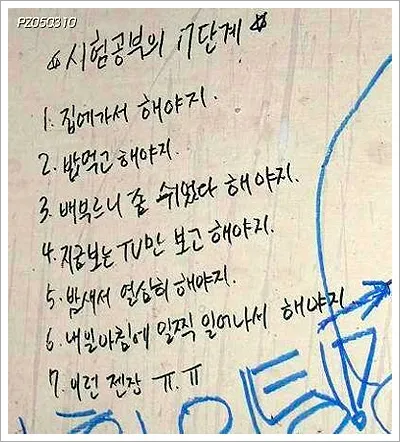 PZ050310
☆시험공부의 7단계☆
1. 집에가서 해야지.
2. 밥먹고 해야지.
3. 배부르니 좀 쉬었다 해야지.
4. 지금보는 TV만 보고 해야지.
5. 밤새서 열심히 해야지.
6. 내일아침에 일찍 일어나서 해야지
7. 이런 젠장 ㅠ.ㅠ